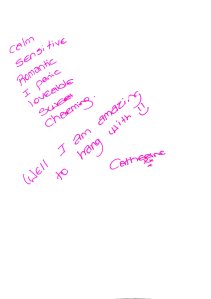 calm
sensitive
Romantic
I panic
loveable
sweet
Charming.
(Well I am amazing
to hang with
Catherine